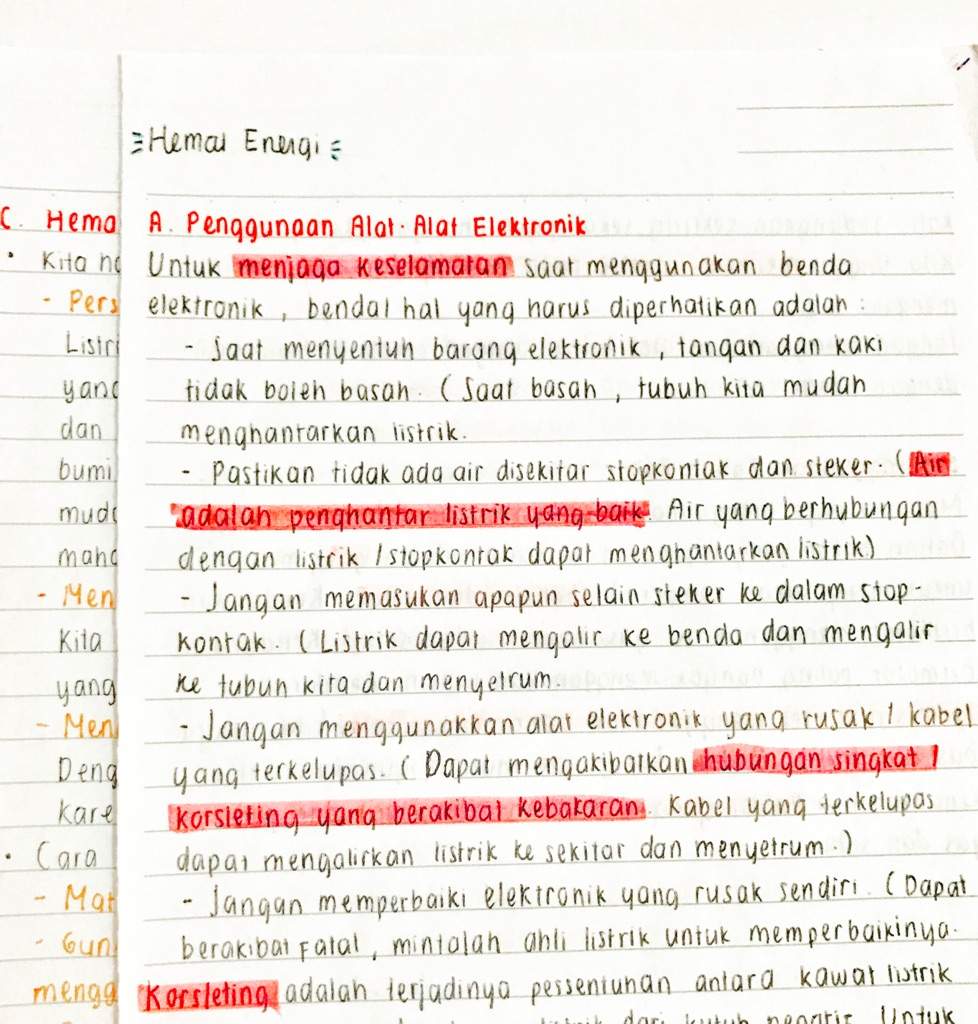 Hemat Energi
A. Penggunaan Alat-Alat Elektronik
Untuk menjaga keselamatan saat menggunakan benda
elektronik, bendal hal yang harus diperhatikan adalah :
- Saat menyentuh barang elektronik, tangan dan kaki
tidak boleh basah. (Saat basah, tubuh kita mudah
menghantarkan listrik.
- Pastikan tidak ada air disekitar stopkontak dan steker. (Air
adalah penghantar listrik yang baik. Air yang berhubungan
dengan listrik /stopkontak dapat menghantarkan listrik)
- Jangan memasukan apapun selain steker ke dalam stop-
kontak. (Listrik dapat mengalir ke benda dan mengalir
ke tubuh kita dan menyetrum.
- Jangan menggunakkan alat elektronik yang rusak / kabel
yang terkelupas. (Dapat mengakibatkan hubungan singkat /
korsleting yang berakibat kebakaran. Kabel yang terkelupas
dapat mengalirkan listrik ke sekitar dan menyetrum.)
- Jangan memperbaiki elektronik yang rusak sendiri. (Dapat
berakibat Fatal, mintalah ahli listrik untuk memperbaikinya.
Korsleting adalah terjadinya pessentuhan antara kawat listrik
listrik dari kutub negatif. Untuk
C. Hema
• Kita ha
- Pers
Listri
yang
dan
bumi
muda
maha
- Men
Kita
yang
- Men
Deng
Kare
• Cara
- Mat
- Gun
mengg